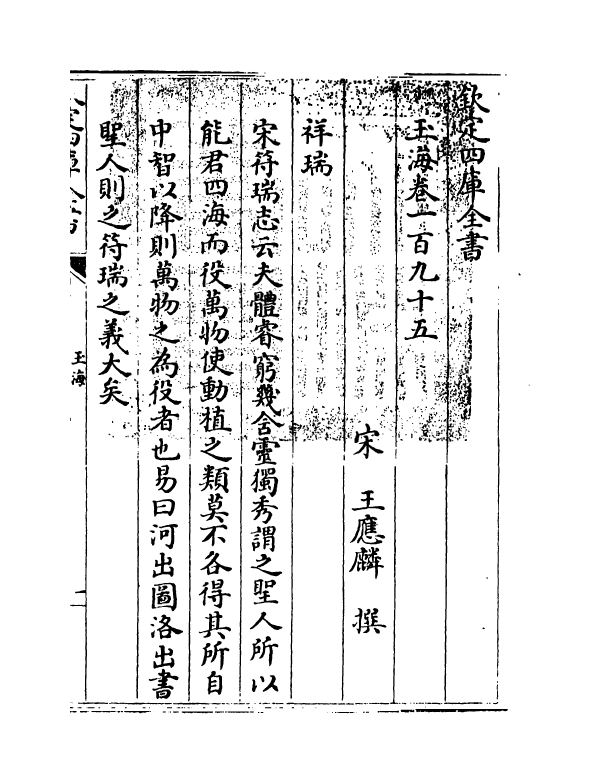 欽定四庫全書
玉海卷一百九十五
宋 王應麟 撰
祥瑞
宋符瑞志云夫體睿窮幾含靈獨秀謂之聖人所以
能君四海而役萬物使動植之類莫不各得其所自
中智以降則萬物之為役者也易曰河出圖洛出書
聖人則之符瑞之義大矣
欽定四庫全書
玉海